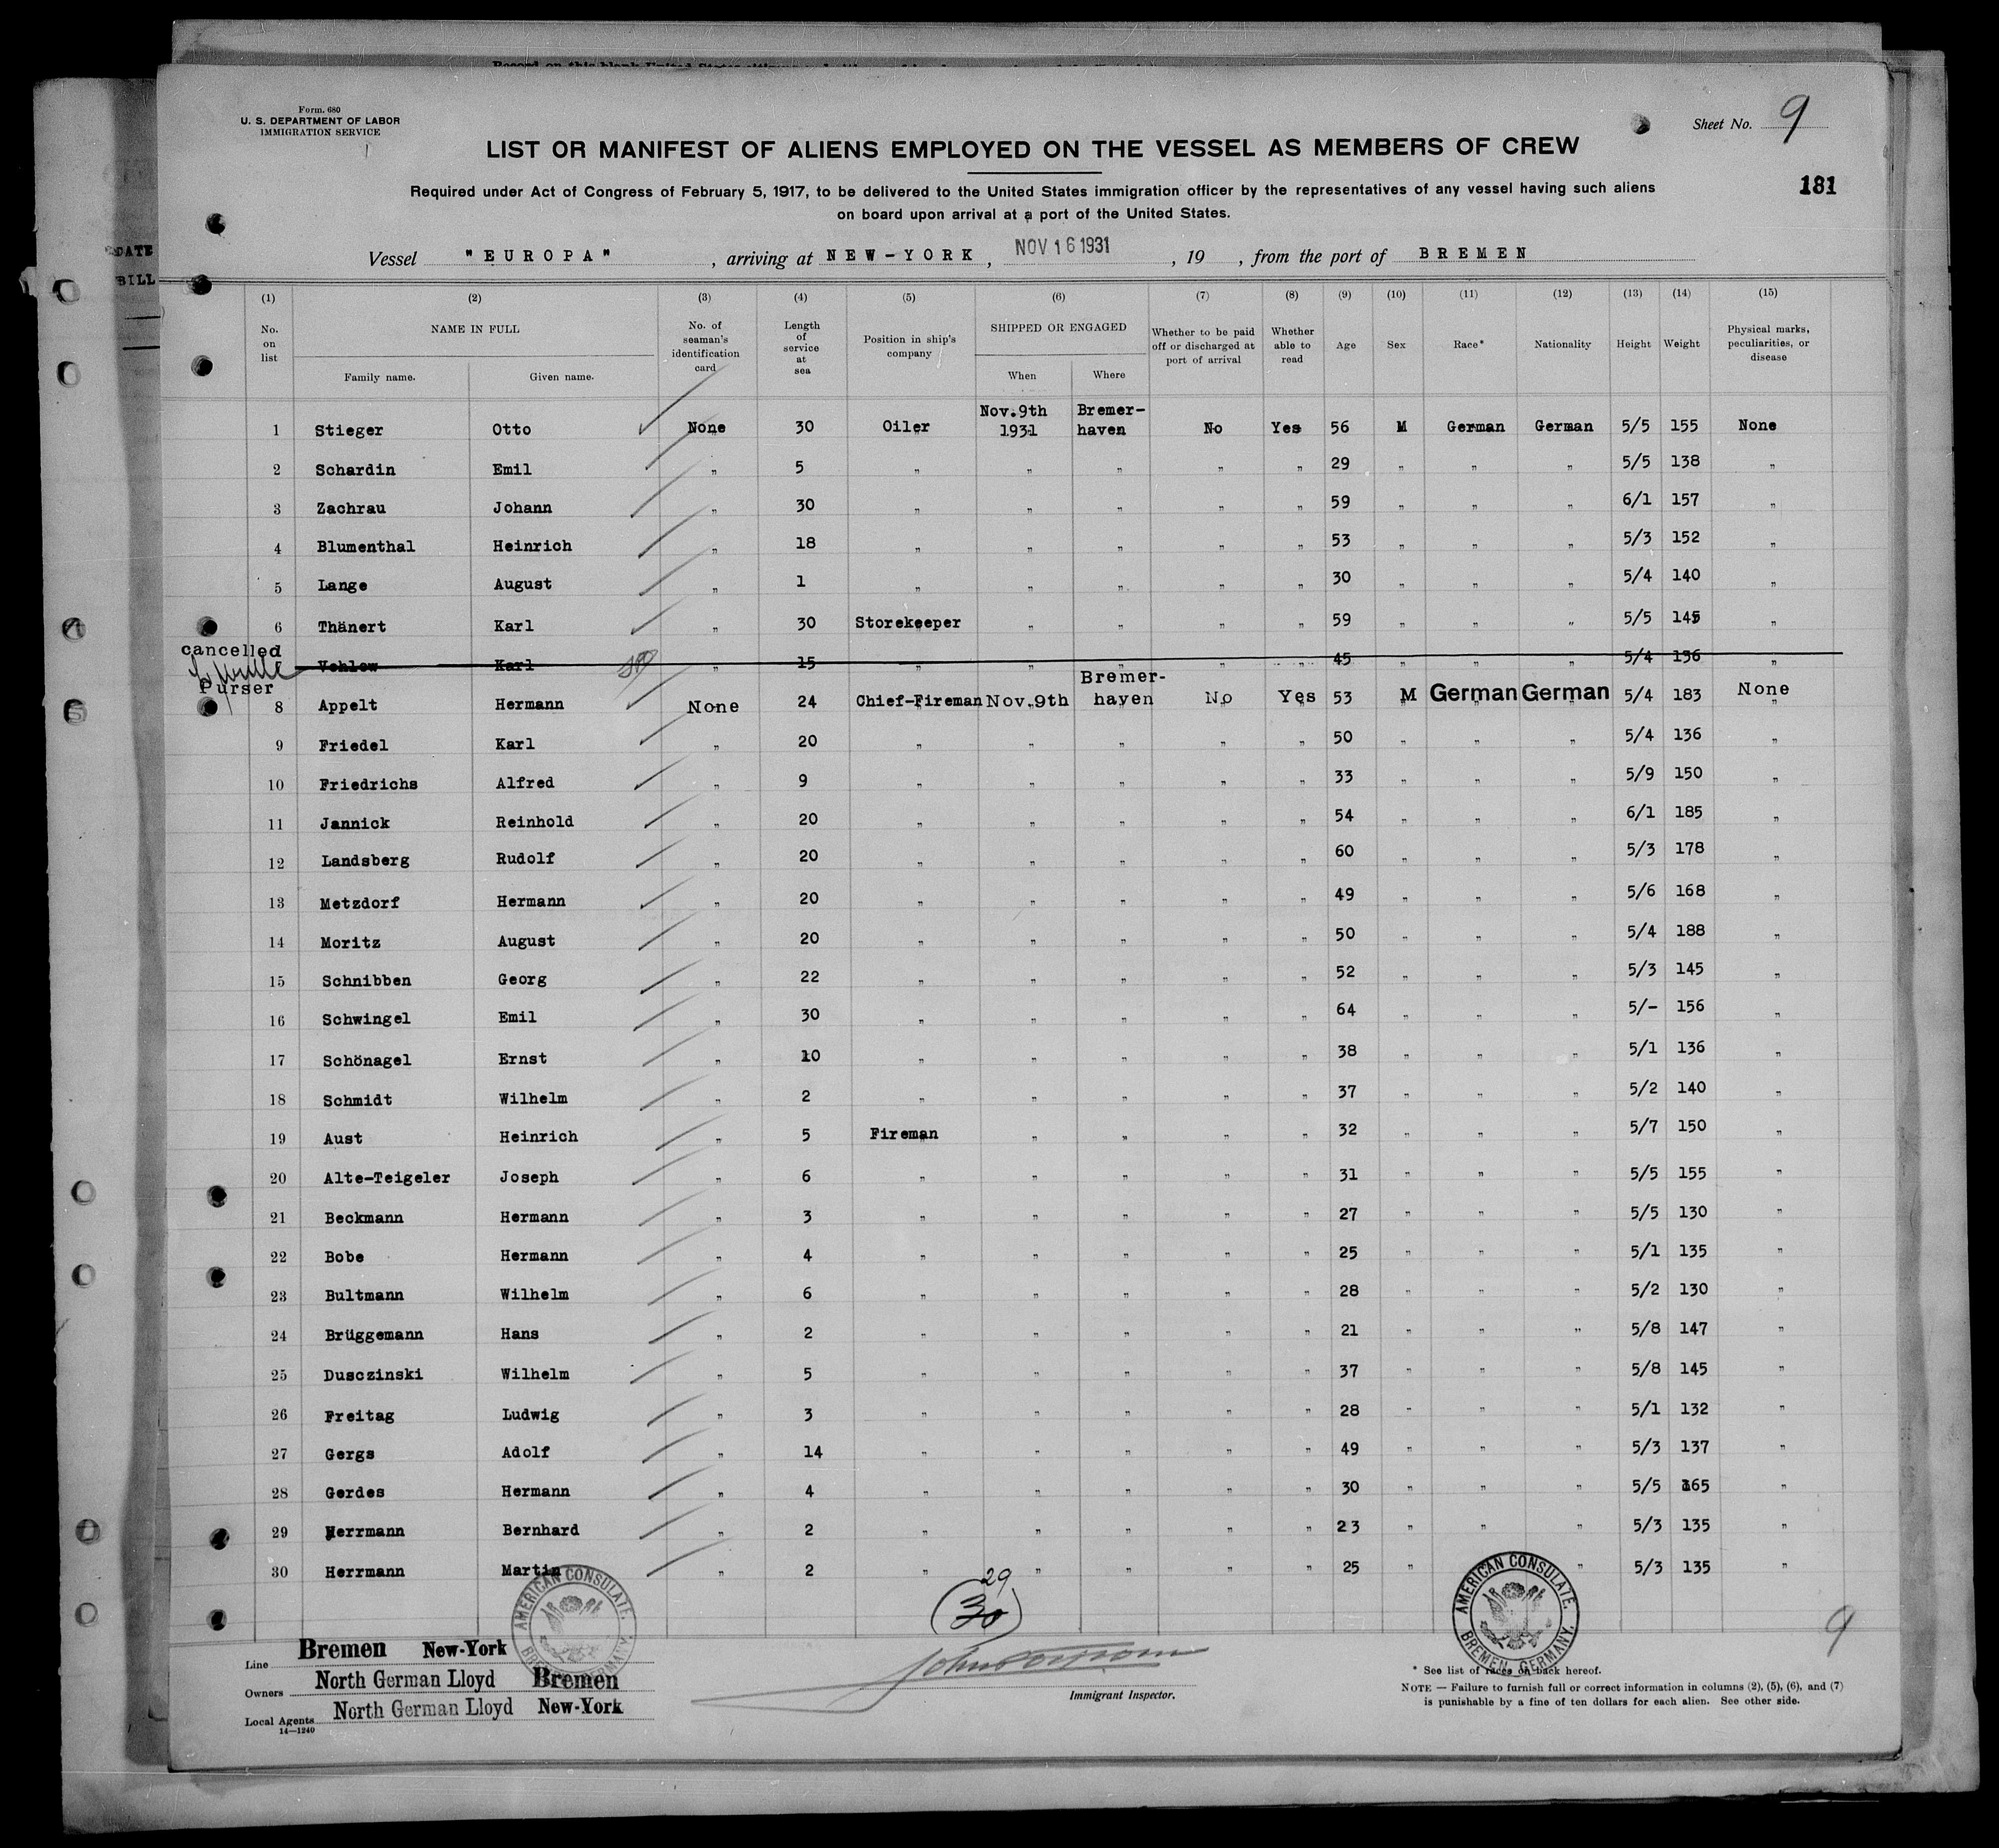 Record on this blank United States citizens
Form. 680
U. S. DEPARTMENT OF LABOR
IMMIGRATION SERVICE
Sheet No. 9
LIST OR MANIFEST OF ALIENS EMPLOYED ON THE VESSEL AS MEMBERS OF CREW
181
Required under Act of Congress of February 5, 1917, to be delivered to the United States immigration officer by the representatives of any vessel having such aliens
on board upon arrival at a port of the United States.
DATE
BILL
Vessel "EUROPA", arriving at NEW-YORK, NOV 16 1931, 19 , from the port of BREMEN
(1) (2) (3) (4) (5) (6) (7) (8) (9) (10) (11) (12) (13) (14) (15)
No. on list NAME IN FULL No. of seaman's identification card Length of service at sea Position in ship's company SHIPPED OR ENGAGED Whether to be paid off or discharged at port of arrival Whether able to read Age Sex Race* Nationality Height Weight Physical marks, peculiarities, or disease
Family name. Given name. When Where
1 Stieger Otto None 30 Oiler Nov.9th 1931 Bremer-haven No Yes 56 M German German 5/5 155 None
2 Schardin Emil " 5 " " " " " 29 " " " 5/5 138 "
3 Zachrau Johann " 30 " " " " " 59 " " " 6/1 157 "
4 Blumenthal Heinrich " 18 " " " " " 53 " " " 5/3 152 "
5 Lange August " 1 " " " " " 30 " " " 5/4 140 "
6 Thänert Karl " 30 Storekeeper " " " " 59 " " " 5/5 145 "
cancelled
Vehlow Karl " 15 " " " " " 45 " " " 5/4 136 "
Purser
8 Appelt Hermann None 24 Chief-Fireman Nov.9th Bremer-haven No Yes 53 M German German 5/4 183 None
9 Friedel Karl " 20 " " " " " 50 " " " 5/4 136 "
10 Friedrichs Alfred " 9 " " " " " 33 " " " 5/9 150 "
11 Jannick Reinhold " 20 " " " " " 54 " " " 6/1 185 "
12 Landsberg Rudolf " 20 " " " " " 60 " " " 5/3 178 "
13 Metzdorf Hermann " 20 " " " " " 49 " " " 5/6 168 "
14 Moritz August " 20 " " " " " 50 " " " 5/4 188 "
15 Schnibben Georg " 22 " " " " " 52 " " " 5/3 145 "
16 Schwingel Emil " 30 " " " " " 64 " " " 5/- 156 "
17 Schönagel Ernst " 10 " " " " " 38 " " " 5/1 136 "
18 Schmidt Wilhelm " 2 " " " " " 37 " " " 5/2 140 "
19 Aust Heinrich " 5 Fireman " " " " 32 " " " 5/7 150 "
20 Alte-Teigeler Joseph " 6 " " " " " 31 " " " 5/5 155 "
21 Beckmann Hermann " 3 " " " " " 27 " " " 5/5 130 "
22 Bobe Hermann " 4 " " " " " 25 " " " 5/1 135 "
23 Bultmann Wilhelm " 6 " " " " " 28 " " " 5/2 130 "
24 Brüggemann Hans " 2 " " " " " 21 " " " 5/8 147 "
25 Dusczinski Wilhelm " 5 " " " " " 37 " " " 5/8 145 "
26 Freitag Ludwig " 3 " " " " " 28 " " " 5/1 132 "
27 Gergs Adolf " 14 " " " " " 49 " " " 5/3 137 "
28 Gerdes Hermann " 4 " " " " " 30 " " " 5/5 165 "
29 Herrmann Bernhard " 2 " " " " " 23 " " " 5/3 135 "
30 Herrmann Martin " 2 " " " " " 25 " " " 5/3 135 "
29
(30)
AMERICAN CONSULATE, BREMEN, GERMANY.
AMERICAN CONSULATE, BREMEN, GERMANY.
9
Line Bremen New-York
Owners North German Lloyd Bremen
Local Agents North German Lloyd New-York
14—1240
Immigrant Inspector.
* See list of races on back hereof.
NOTE — Failure to furnish full or correct information in columns (2), (5), (6), and (7)
is punishable by a fine of ten dollars for each alien. See other side.